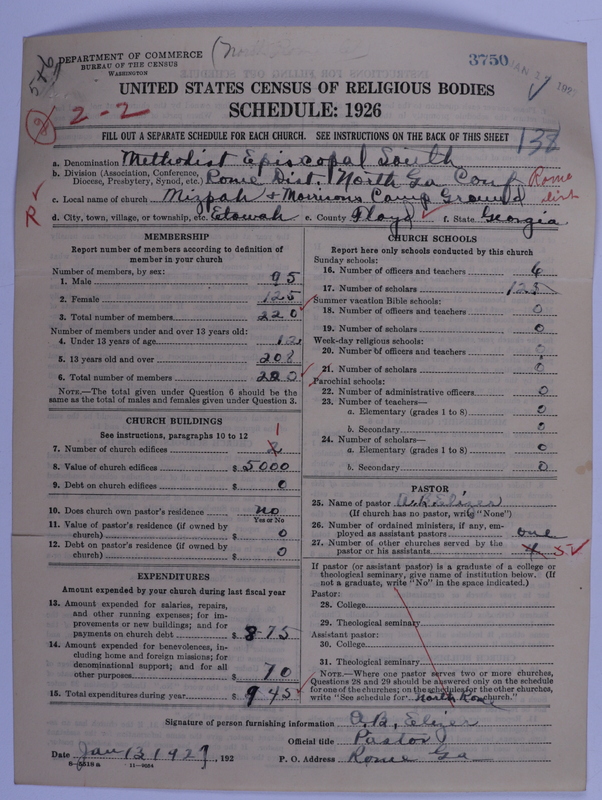 3750
JAN 2
DEPARTMENT OF COMMERCE
BUREAU OF THE CENSUS
WASHINGTON
UNITED STATES CENSUS OF RELIGIOUS BODIES
SCHEDULE: 1926
2-2
138
FILL OUT A SEPARATE SCHEDULE FOR EACH CHURCH. SEE INSTRUCTIONS ON THE BACK OF THIS SHEET
a. Denomination Methodist Episcopal South
b. Division (Association, Conference, Diocese, Presbytery, Synod, etc.) Rome Dist. North Ga Conf Rome dist
c. Local name of church Mizpah + Morrisons Camp Ground
R
d. City, town, village, or township, etc. Etowah e. County Floyd f. State Georgia
MEMBERSHIP
Report number of members according to definition of
member in your church
Number of members, by sex:
1. Male 95
2. Female 125
3. Total number of members 220
Number of members under and over 13 years old:
4. Under 13 years of age 12
5. 13 years old and over 208
6. Total number of members 220
NOTE.—The total given under Question 6 should be
same as the total of males and females given under Question 3.
CHURCH BUILDINGS
See instructions, paragraphs 10 to 12
1
7. Number of church edifices 2
8. Value of church edifices $5000
9. Debt on church edifices $ 0
10. Does church own pastor's residence no
Yes or No
11. Value of pastor's residence (if owned by
church) $ 0
12. Debt on pastor's residence (if owned by
church) $ 0
EXPENDITURES
Amount expended by your church during last fiscal year
13. Amount expended for salaries, repairs,
and other running expenses; for im-
provements or new buildings; and for
payments on church debt $ 875
14. Amount expended for benevolences, in-
cluding home and foreign missions; for
denominational support; and for all
other purposes $ 70
15. Total expenditures during year $ 945
CHURCH SCHOOLS
Report here only schools conducted by this church
Sunday schools:
16. Number of officers and teachers 6
17. Number of scholars 125
Summer vacation Bible schools:
18. Number of officers and teachers 0
19. Number of scholars 0
Week-day religious schools:
20. Number of officers and teachers 0
21. Number of scholars 0
Parochial schools:
22. Number of administrative officers 0
23. Number of teachers—
a. Elementary (grades 1 to 8) 0
b. Secondary 0
24. Number of scholars—
a. Elementary (grades 1 to 8) 0
b. Secondary 0
PASTOR
25. Name of pastor A. B. Elizer
(If church has no pastor, write "None")
26. Number of ordained ministers, if any, em-
ployed as assistant pastors one
27. Number of other churches served by the
pastor or his assistants 4 5
If pastor (or assistant pastor) is a graduate of a college or
theological seminary, give name of institution below. (If
not a graduate, write "No" in the space indicated.)
Pastor:
28. College
29. Theological seminary
Assistant pastor:
30. College
31. Theological seminary
NOTE.—Where one pastor serves two or more churches,
Questions 28 and 29 should be answered only on the schedule
for one of the churches; on the schedules for the other churches,
write "See schedule for North Rome church."
Signature of person furnishing information A. B. Elizer
Official title Pastor
Date Jan 13 1927, 192
P. O. Address Rome Ga